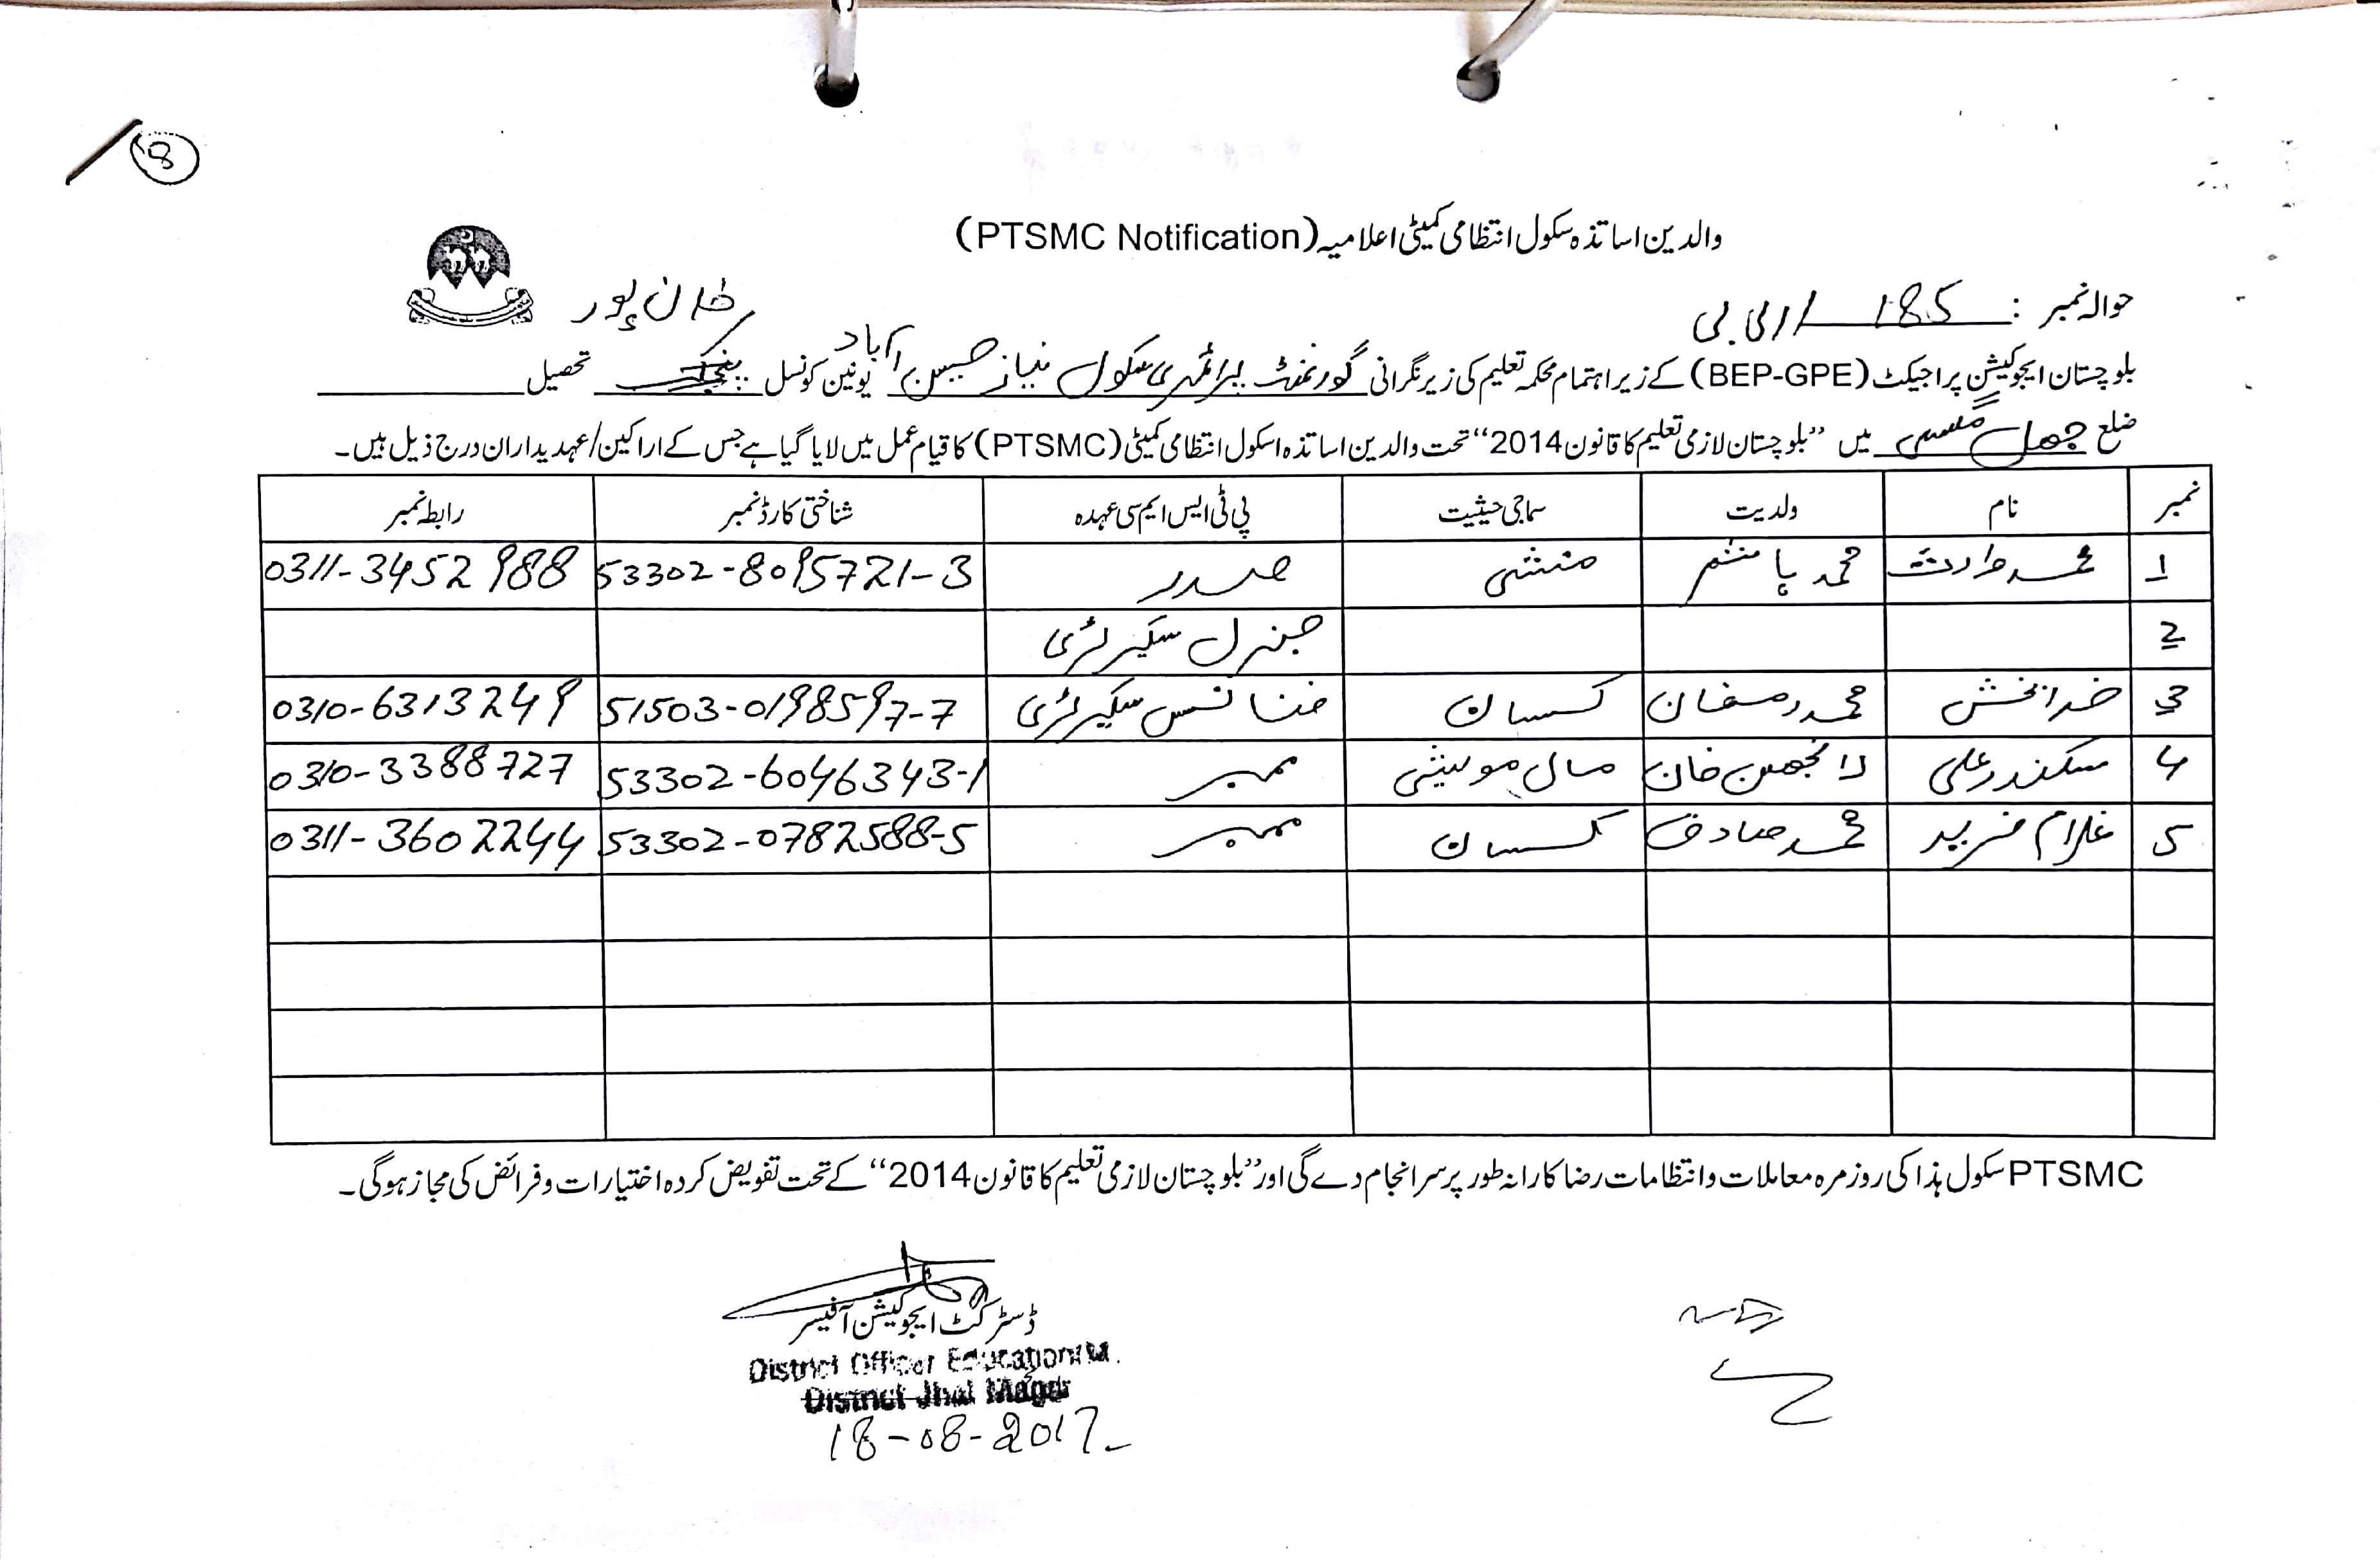 8
والدین اساتذہ سکول انتظامی کمیٹی اعلامیہ (PTSMC Notification)
حوالہ نمبر : 185 /ای بی
خان پور
بلوچستان ایجوکیشن پراجیکٹ (BEP-GPE) کے زیر اہتمام محکمہ تعلیم کی زیر نگرانی گورنمنٹ پرائمری سکول نیاز حسین آباد یونین کونسل تحصیل
ضلع جھل مگسی میں "بلوچستان لازمی تعلیم کا قانون 2014" تحت والدین اساتذہ اسکول انتظامی کمیٹی (PTSMC) کا قیام عمل میں لایا گیا ہے جس کے اراکین/عہدیداران درج ذیل ہیں۔
نمبر نام ولدیت سماجی حیثیت پی ٹی ایس ایم سی عہدہ شناختی کارڈ نمبر رابطہ نمبر
1 محمد وارث محمد ہاشم منشی صدر 53302-8095721-3 0311-3452988
2 جنرل سیکرٹری
3 خدا بخش محمد رمضان کسان فنانس سیکرٹری 51503-0198597-7 0310-6313249
4 سکندر علی خان مال مویشی ممبر 53302-6046343-1 0310-3388727
5 غلام فرید محمد صادق کسان ممبر 53302-0782588-5 0311-3602244
PTSMC سکول ہذا کی روزمرہ معاملات و انتظامات رضا کارانہ طور پر سر انجام دے گی اور "بلوچستان لازمی تعلیم کا قانون 2014" کے تحت تفویض کردہ اختیارات و فرائض کی مجاز ہوگی۔
ڈسٹرکٹ ایجوکیشن آفیسر
District Officer Education(M
District Jhal Magsi
18-08-2017